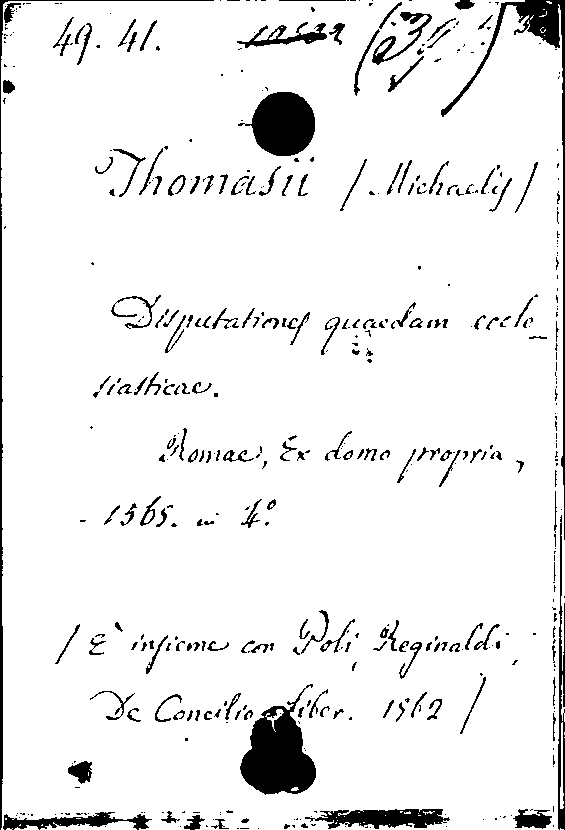 49. 41.
Thomasii / Michaelis /
Disputationes quaedam eccle-
siasticae.
Romae, Ex domo propria,
1565. in 4.º
/ È insieme con Poli, Reginaldi,
De Concilio Liber. 1562 /